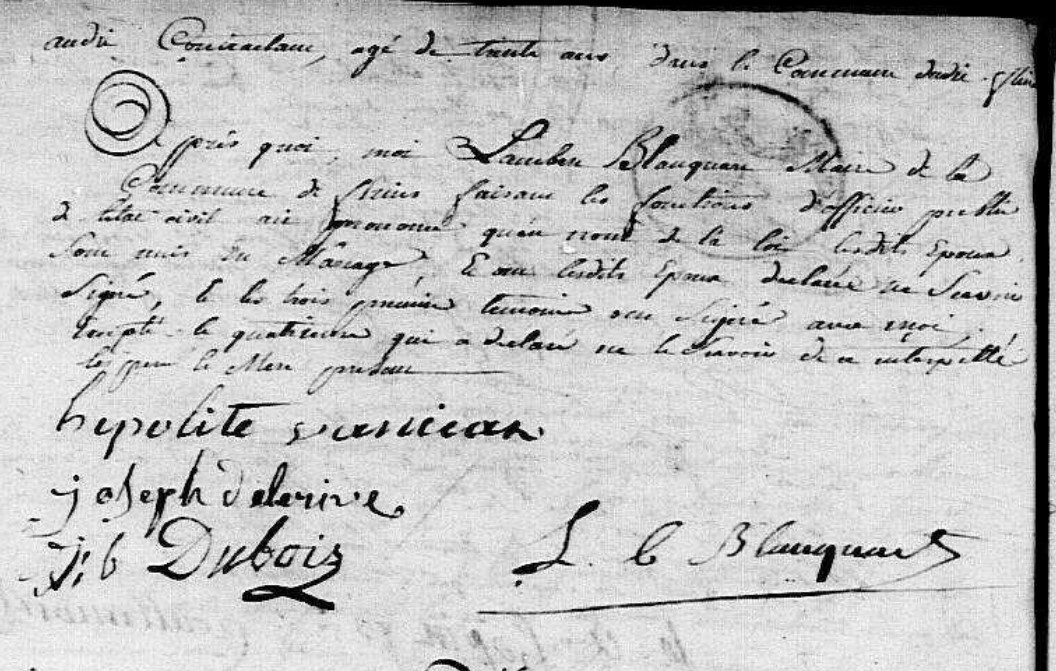 audit Contractant, agé de trente ans dans la Commune dudit
Après quoi, moi Lambert Blauquart Maire de la
Commune de faisant les fonctions d'officier public
de letat civil ai prononcé quau nom de la loi lesdits Epoux
sont unis en Mariage, Et ont lesdits Epoux declaré ne Scavoir
Signé, et les trois premier temoins ont Signé avec moi,
Excepté le quatrieme qui a declaré ne le Scavoir de ce interpellé
les pere et Mere present
hepolite
joseph delerive
j: b Dubois
L. b Blauquart